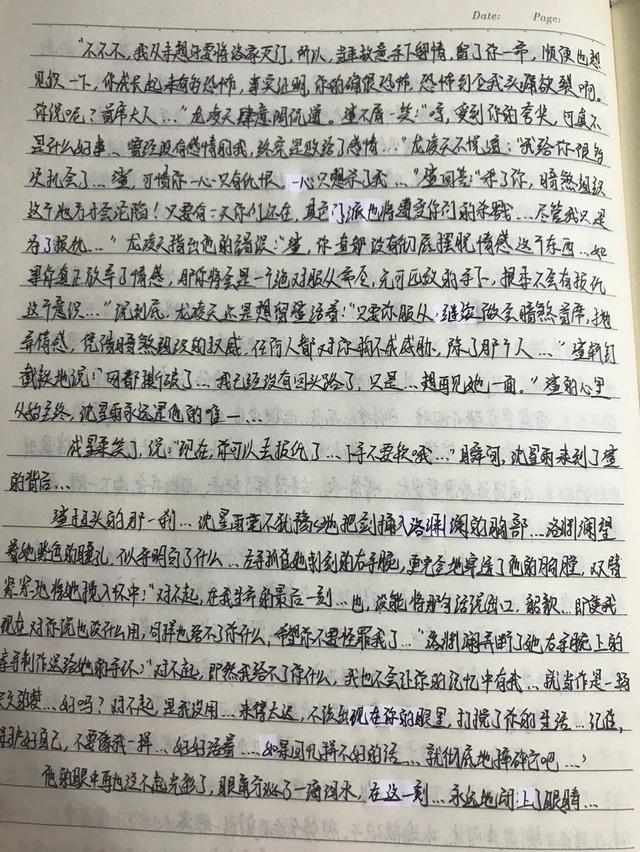 Date: Page:
"不不不，我从未想过要将洛家灭门，所以，当年故意手下留情，留了你一命，顺便也想
见识一下，你成长起来有多恐怖，事实证明，你的确很恐怖，恐怖到令我头痛欲裂啊。
你说呢？首席大人…"龙凌天肆意阴侃道。 不屑一笑："哼，受到你的夸奖，可真不
是什么好事…曾经没有感情的我，终究是败给了感情…"龙凌天不慌道："我给你很多
次机会了… ，可惜你一心只有仇恨，一心只想杀了我…" 回答："杀了你，暗煞组织
这个地方才会沦陷！只要有一天你们还在，其它门派也将遭受你们的杀戮…尽管我只是
为了报仇…"龙凌天指出他的错误：" ，你直都没有彻底摆脱情感这个东西…如
果你真正放弃了情感，那你将会是一个绝对服从命令，无可匹敌的手下，根本不会有报仇
这个意识…"说到底，龙凌天还是想留 活着："只要你服从，继续做会暗煞首席，抛
弃情感，凭借暗煞组织的权威，任何人都对你构不成威胁，除了那个人…" 斩钉
截铁地说："网都撕破了…我已经没有回头路了，只是…想再见她一面。" 的心里
从始至终，沈星雨永远是他的唯一…
成星柔笑了，说："现在，你可以去报仇了…下手不要软哦…"瞬间，沈星雨来到了
的背后…
回头的那一刹…沈星雨毫不犹豫地把剑捅入洛渊澜的胸部…洛渊澜望
着她紫色的瞳孔，似乎明白了什么…左手抓住她刺剑的右手腕，更完全地穿透了他的胸膛，双臂
紧紧地将她揽入怀中："对不起，在我生命的最后一刻…也，没能将那句话说出口，
现在对你说也没什么用，同样也给不了你什么，希望你不要怪罪我了…"洛渊澜弄断了她右手腕上的
亲手制作送给她的手环："对不起，既然我给不了你什么，我也不会让你的记忆中有我…就当作是一场
的梦…好吗？对不起，是我没用…来得太迟，不该出现在你的眼里，打搅了你的生活…记住，
保护好自己，不要像我一样…好好活着…如果回忆拼不好的话…就彻底地摔碎它吧…"
他的眼中再也泛不起光彩了，眼角分泌了一滴泪水，在这一刻…永远地闭上了眼睛…